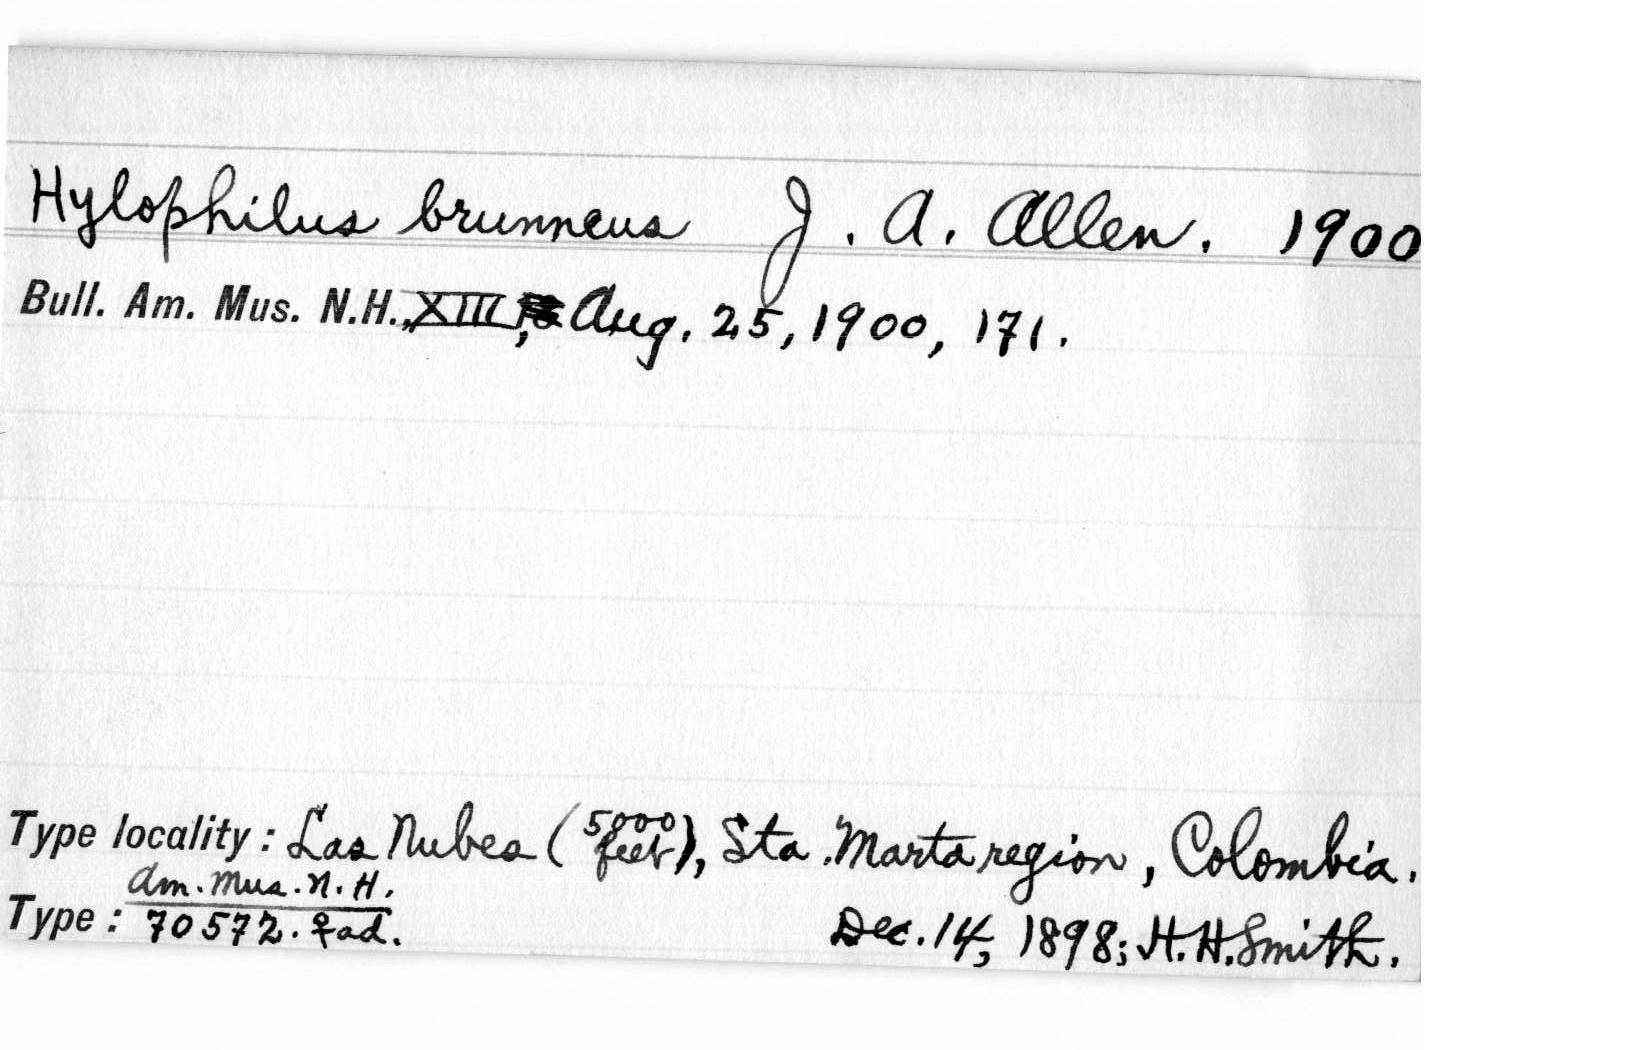 Hylophilus brunneus J. A. Allen. 1900
Bull. Am. Mus. N.H., XIII, Aug. 25, 1900, 171.
Type locality: Las Nubes (5000 feet), Sta. Marta region, Colombia.
Am. Mus. N. H.
Type: 70572. ♀ ad. Dec. 14, 1898; H. H. Smith.